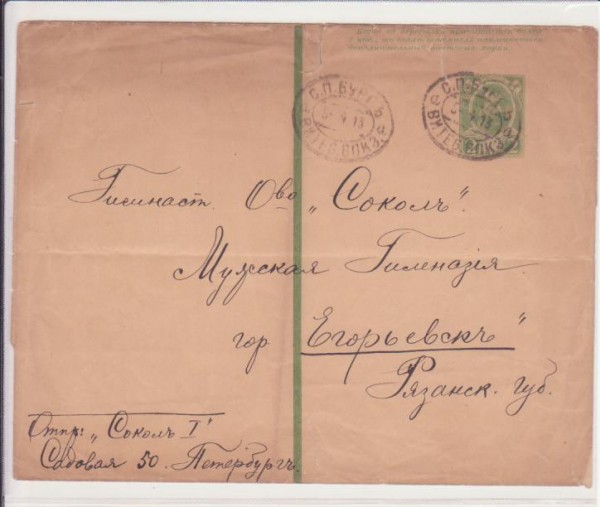 С.П.БУРГЪ
4 13
ВИТЕБ. ВОКЗ.
С.П.БУРГЪ
4 13
ВИТЕБ. ВОКЗ.
Гимнаст. Ово „Соколъ“.
Мужская Гимназія
гор Егорьевскъ“
Рязанск. Губ.
Отпр: „Соколъ I“
Садовая 50. Петербургъ.